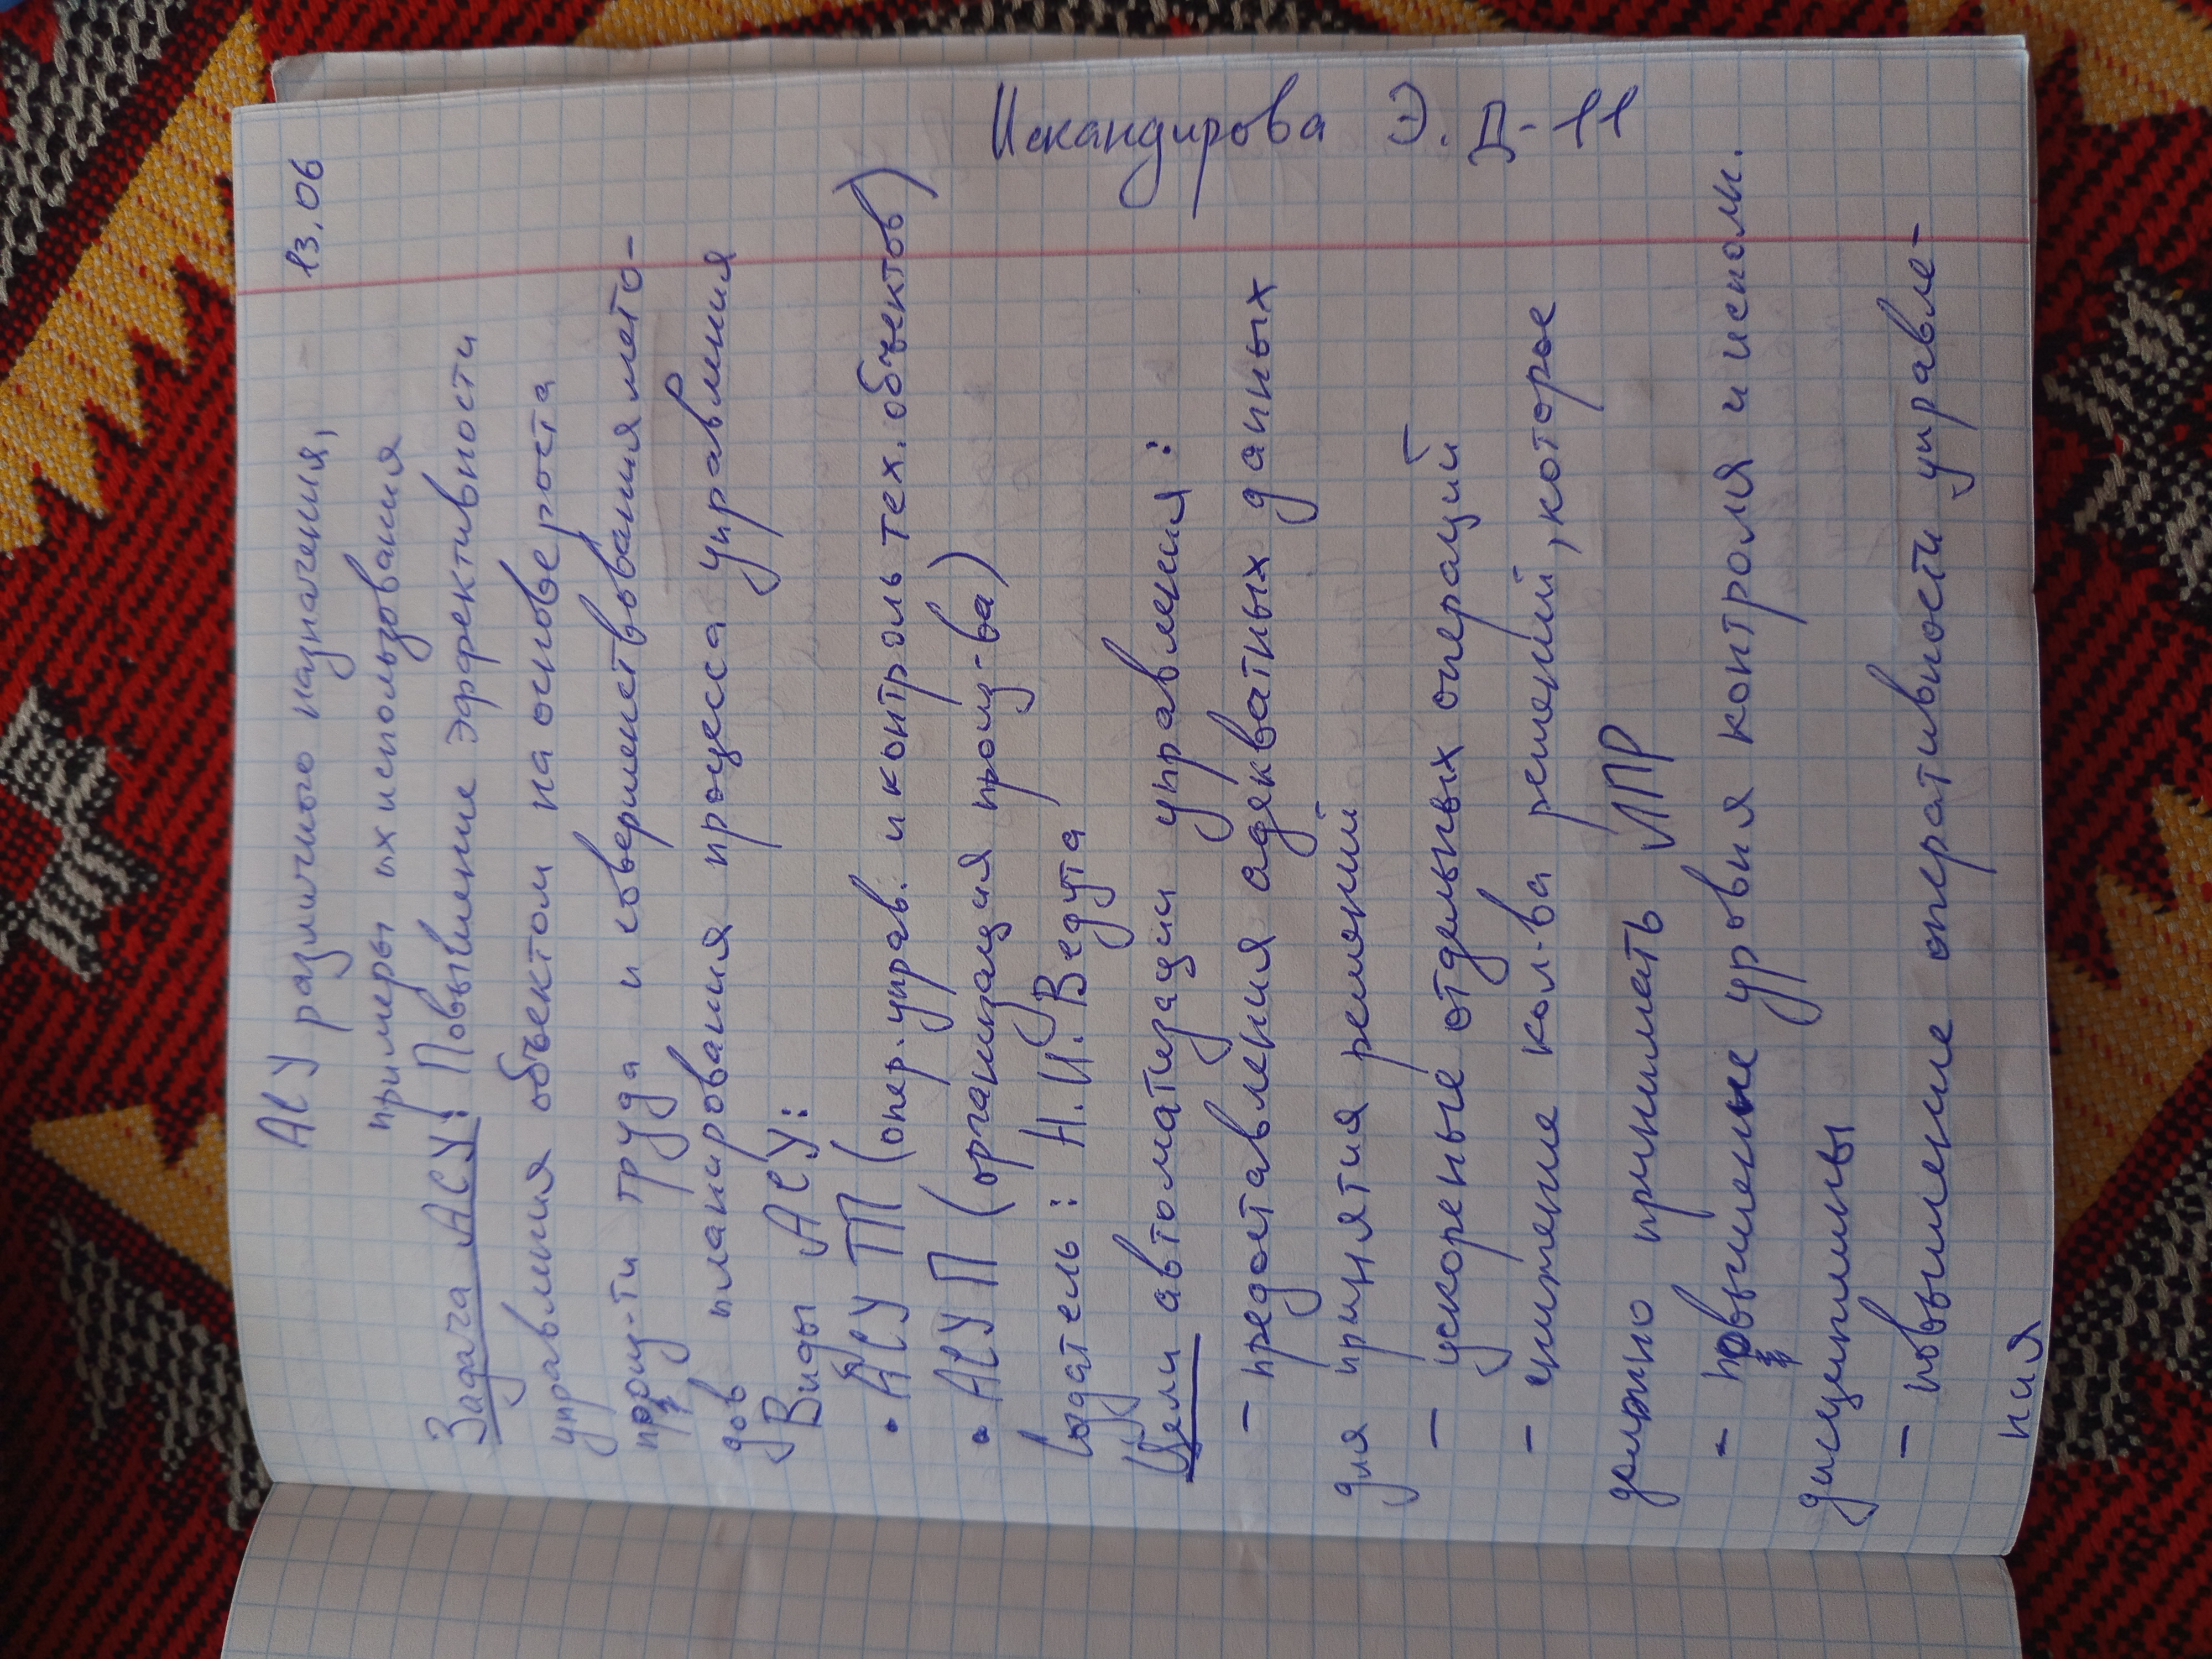 13.06
АСУ различного назначения,
примеры их использования
Задача АСУ: Повышение эффективности
управления объектом на основе роста
произ-ти труда и совершенствования мето-
дов планирования процесса управления
Виды АСУ:
• АСУ ТП (опер. управ. и контроль тех. объектов)
• АСУ П (организация произ-ва)
Создатель: Н.И. Ведута
Цели автоматизации управления:
- предоставления адекватных даных
для принятия решений
- ускореные отдельных операций
- снижение кол-ва решений, которые
должно принимать ЛПР
- повышеные уровня контроля и исполн.
дисциплины
- повышение оперативности управле-
ния
Искандирова Э.
П-11